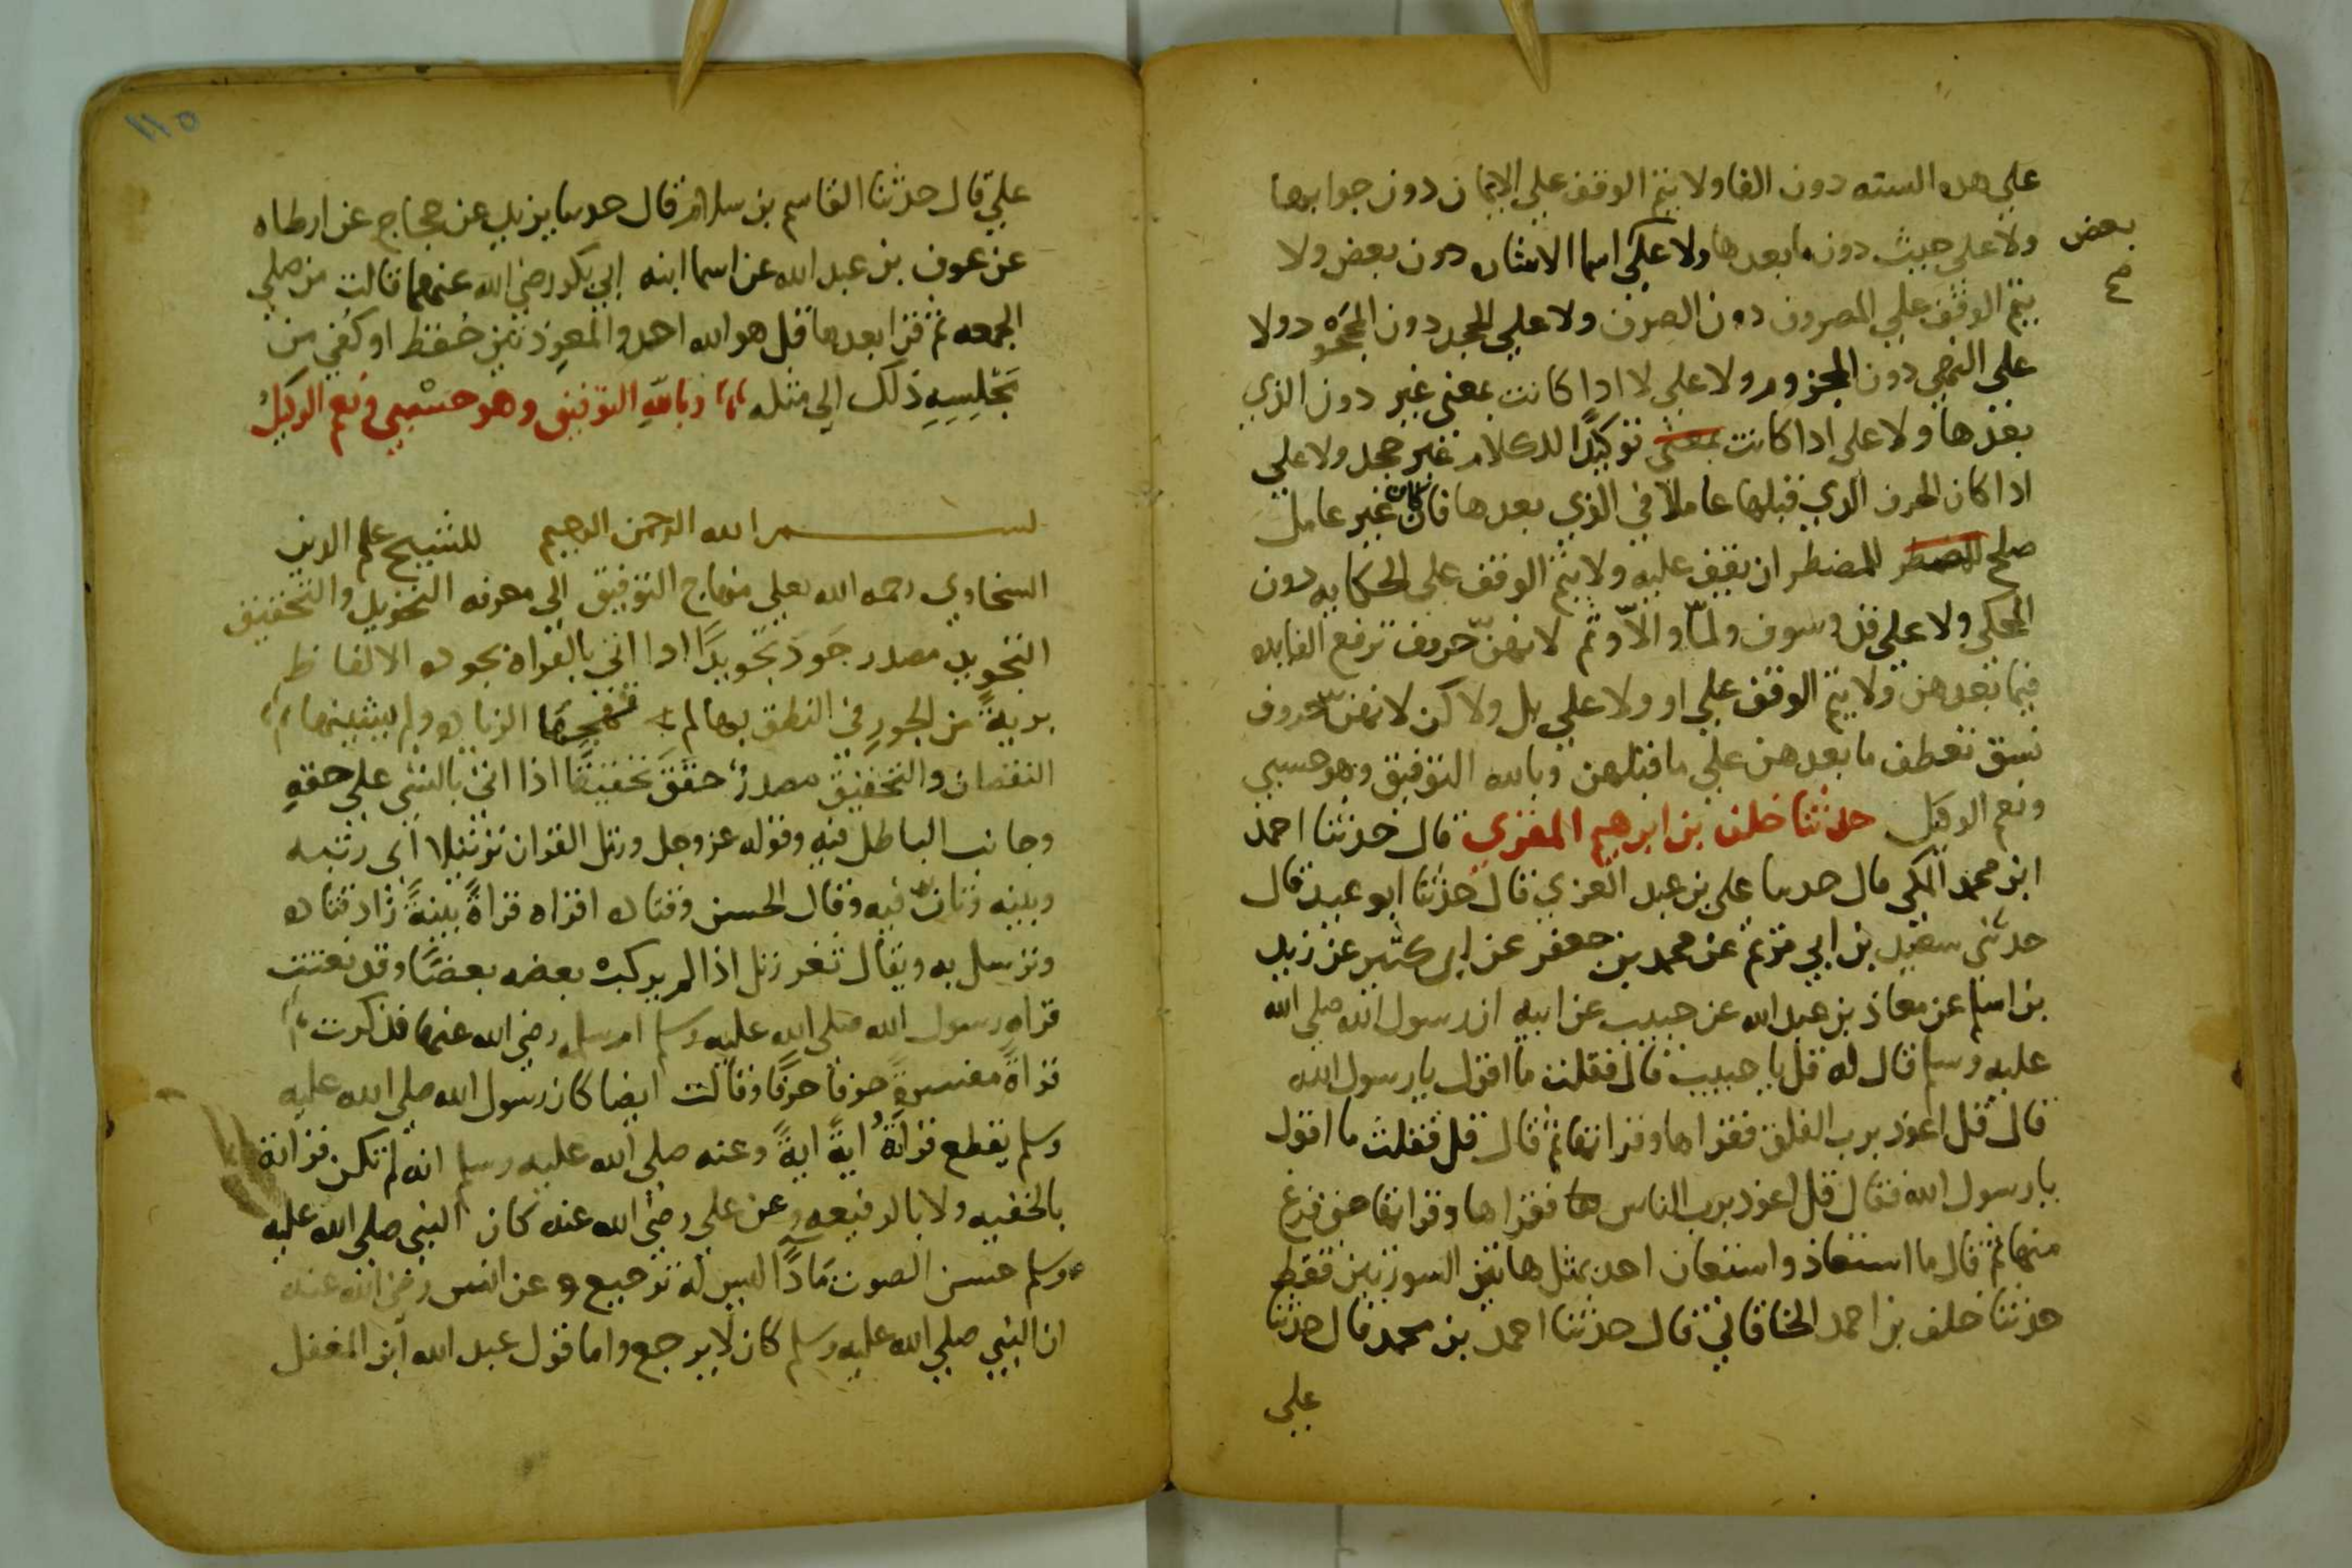 على هده السته دون الفا ولا يتم الوقف علي الايمان دون جوابها
ولا على حيث دون ما بعدها ولا علي اسما الاشاره دون بعض ولا
بعض
صح
يتم الوقف علي المصروف دون الصرف ولا علي الجحد دون المجحود ولا
على النهي دون المجزوم ولا علي لا ادا كانت بمعنى غير دون الذي
بعدها ولا على ادا كانت بمعنى توكيدًا للكلام غير جحد ولا على
ادا كان الحرف الدي قبلها عاملا في الذي بعدها فان كان غير عامل
صلح للمضطر للمضطر ان يقف عليه ولا يتم الوقف على الحكايه دون
المحكي ولا على قد وسوف ولمّا والّا وثم لانهنّ حروف ترفع الفايده
فيما بعدهن ولا يتم الوقف علي او ولا علي بل ولا كن لانهنّ حروف
نسق تعطف ما بعدهن علي ما قبلهن وبالله التوفيق وهو حسبي
ونعم الوكيل حدثنا خلف بن ابرهيم المقري قال حدثنا احمد
ابن محمد المكى قال حدثنا على بن عبد العزي قال حدثنا ابو عبيد قال
حدثنى سعيد بن ابي مريم عن محمد بن جعفر عن ابى كثير عن زيد
بن اسلم عن معاذ بن عبد الله عن حبيب عن ابيه ان رسول الله صلى الله
عليه وسلم قال له قل يا حبيب قال فقلت ما اقول يا رسول الله
قال قل اعوذ برب الفلق فقراها وقراتها ثم قال قل فقلت ما اقول
يا رسول الله فقال قل اعوذ برب الناس فقراها وقراتها حتى فرغ
منها ثم قال ما استعاذ واستعان احد بمثل هاتين السورتين فقط
حدثنا خلف بن احمد الخاقاني قال حدثنا احمد بن محمد قال حدثنا
علي
١١٥
عليّ قال حدثنا القاسم بن سلام قال حدثنا يزيد عن حجاج عن ارطاه
عن عوف بن عبد الله عن اسما ابنه ابي بكر رضي الله عنهما قالت من صلي
الجمعه ثم قرا بعدها قل هو الله احد والمعوذتين حُفظ او كُفي من
مَجْلِسِهِ ذلك الي مثله وبالله التوفيق وهو حسْبي ونعم الوكيلُ
بسم الله الرحمن الرحيم للشيخ علم الدين
السخاوي رحمه الله تعلى منهاج التوفيق الى معرفه التجويد والتحقيق
التجويد مصدر جَوّدَ تجويدًا ادا اتى بالقراه بجوده الالفاظ
بريةً من الجور في النطق بها لم تهجنها الزياده ولم يشينها
النقصان والتحقيق مصدرُ حقّقَ تحقيقًا اذا اتى بالشى على حقهِ
وجانب الباطل فيه وقوله عز وجل ورتل القران ترتيلا أي رتبه
وبينه وتانّ فيه وقال الحسن وقتاده اقراه قراةً بينةً زاد قتاده
وترسل به ويقال ثغر رتل اذا لم يركب بعضه بعضًا وقد نعتت
قراه رسول الله صلى الله عليه وسلم ام سلمه رضي الله عنها فذكرت
قراةً مفسرةً حرفا حرفًا وقالت ايضا كان رسول الله صلى الله عليه
وسلم يقطع قراتهُ ايةً ايةً وعنه صلى الله عليه وسلم انه لم تكن قراته
بالخفيه ولا بالرفيعه وعن علي رضي الله عنه كان النبى صلى الله عليه
وسلم حسن الصوت مَادًّا ليس له ترجيع وعن انس رضي الله عنه
ان النبي صلي الله عليه وسلم كان لا يرجع واما قول عبد الله ابن المغفل